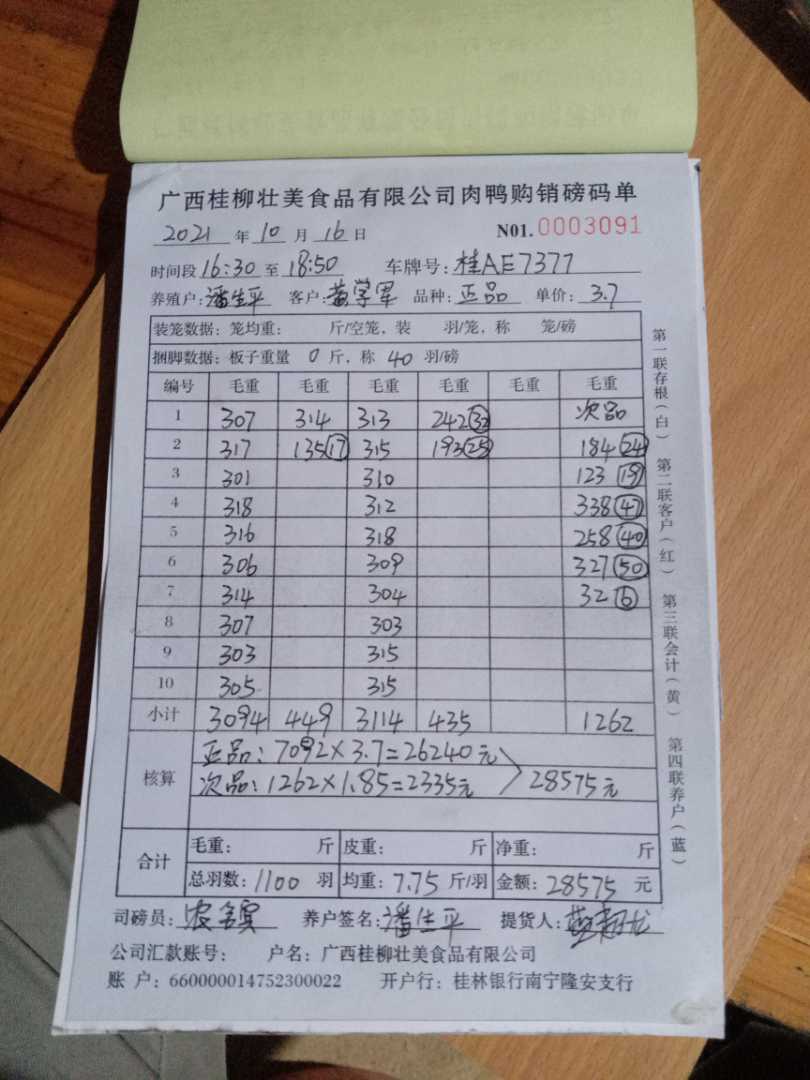 广西桂柳壮美食品有限公司肉鸭购销磅码单
2021 年 10 月 16 日 N01.0003091
时间段 16:30 至 18:50 车牌号: 桂AE7377
养殖户: 潘生平 客户: 黄学军 品种: 正品 单价: 3.7
装笼数据: 笼均重: 斤/空笼, 装 羽/笼, 称 笼/磅
捆脚数据: 板子重量 0 斤, 称 40 羽/磅
编号 毛重 毛重 毛重 毛重 毛重 毛重
1 307 314 313 242(32) 次品
2 317 135(17) 315 193(25) 184(24)
3 301 310 123(19)
4 318 312 338(47)
5 316 318 258(40)
6 306 309 327(50)
7 314 304 32(6)
8 307 303
9 303 315
10 305 315
小计 3094 449 3114 435 1262
核算
正品: 7092×3.7=26240元
次品: 1262×1.85=2335元 28575元
合计
毛重: 斤 皮重: 斤 净重: 斤
总羽数: 1100 羽 均重: 7.75 斤/羽 金额: 28575 元
司磅员: 养户签名: 潘生平 提货人:
公司汇款账号: 户名: 广西桂柳壮美食品有限公司
账 户: 660000014752300022 开户行: 桂林银行南宁隆安支行
第一联存根(白) 第二联客户(红) 第三联会计(黄) 第四联养户(蓝)